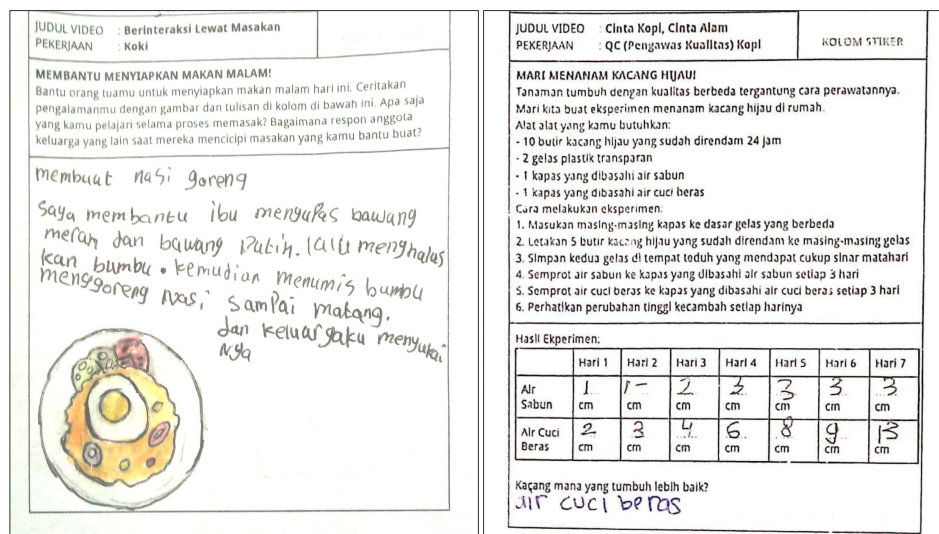 JUDUL VIDEO : Berinteraksi Lewat Masakan
PEKERJAAN : Koki
MEMBANTU MENYIAPKAN MAKAN MALAM!
Bantu orang tuamu untuk menyiapkan makan malam hari ini. Ceritakan
pengalamanmu dengan gambar dan tulisan di kolom di bawah ini. Apa saja
yang kamu pelajari selama proses memasak? Bagaimana respon anggota
keluarga yang lain saat mereka mencicipi masakan yang kamu bantu buat?
membuat nasi goreng
saya membantu ibu mengupas bawang
merah dan bawang Putih. lalu menghalus
kan bumbu. kemudian menumis bumbu
menggoreng nasi sampai matang.
dan keluargaku menyukai
nya
JUDUL VIDEO : Cinta Kopi, Cinta Alam
PEKERJAAN : QC (Pengawas Kualitas) Kopi
KOLOM STIKER
MARI MENANAM KACANG HIJAU!
Tanaman tumbuh dengan kualitas berbeda tergantung cara perawatannya.
Mari kita buat eksperimen menanam kacang hijau di rumah.
Alat alat yang kamu butuhkan:
- 10 butir kacang hijau yang sudah direndam 24 jam
- 2 gelas plastik transparan
- 1 kapas yang dibasahi air sabun
- 1 kapas yang dibasahi air cuci beras
Cara melakukan eksperimen:
1. Masukan masing-masing kapas ke dasar gelas yang berbeda
2. Letakan 5 butir kacang hijau yang sudah direndam ke masing-masing gelas
3. Simpan kedua gelas di tempat teduh yang mendapat cukup sinar matahari
4. Semprot air sabun ke kapas yang dibasahi air sabun setiap 3 hari
5. Semprot air cuci beras ke kapas yang dibasahi air cuci beras setiap 3 hari
6. Perhatikan perubahan tinggi kecambah setiap harinya
Hasil Ekperimen:
Hari 1 Hari 2 Hari 3 Hari 4 Hari 5 Hari 6 Hari 7
Air Sabun 1 cm 1 cm 2 cm 3 cm 3 cm 3 cm 3 cm
Air Cuci Beras 2 cm 3 cm 4 cm 6 cm 8 cm 9 cm 13 cm
Kacang mana yang tumbuh lebih baik?
air cuci beras